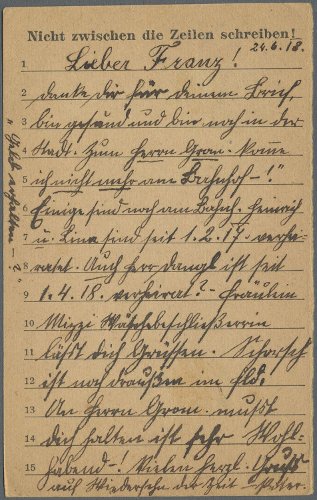 Nicht zwischen die Zeilen schreiben!
24.6.18.
1 Lieber Franz!
2 danke dir für deinen Brief,
3 bin gesund und bin noch in der
4 Stadt. Zum Herrn Gram. komme
5 ich nicht mehr am Bahnhof-!"
6 Einige sind noch am Heinrich
7 u. Lina sind seit 1.2.17. verhei-
8 ratet. Auch Herr dangl ist seit
9 1.4.18. verheirat?- Fräulein
10 Mizzi Wäschebeschließerin
11 läßt dich Grüssen. Schorsch
12 ist noch draußen im
13 An Herrn Gram. mußt
14 dich halten ist sehr Wohl-
15 habend-! Vielen herzl. Gruß
auf Wiedersehn der Zeit -
" erhalten ? "